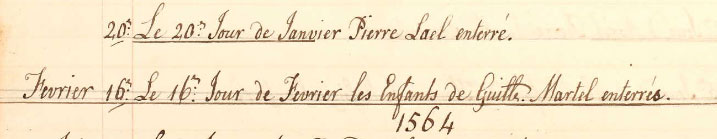 20r. Le 20r. Jour de Janvier Pierre Lael enterré.
Fevrier 16r. Le 16r. Jour de Fevrier les Enfants de Guille. Martel enterrés.
1564